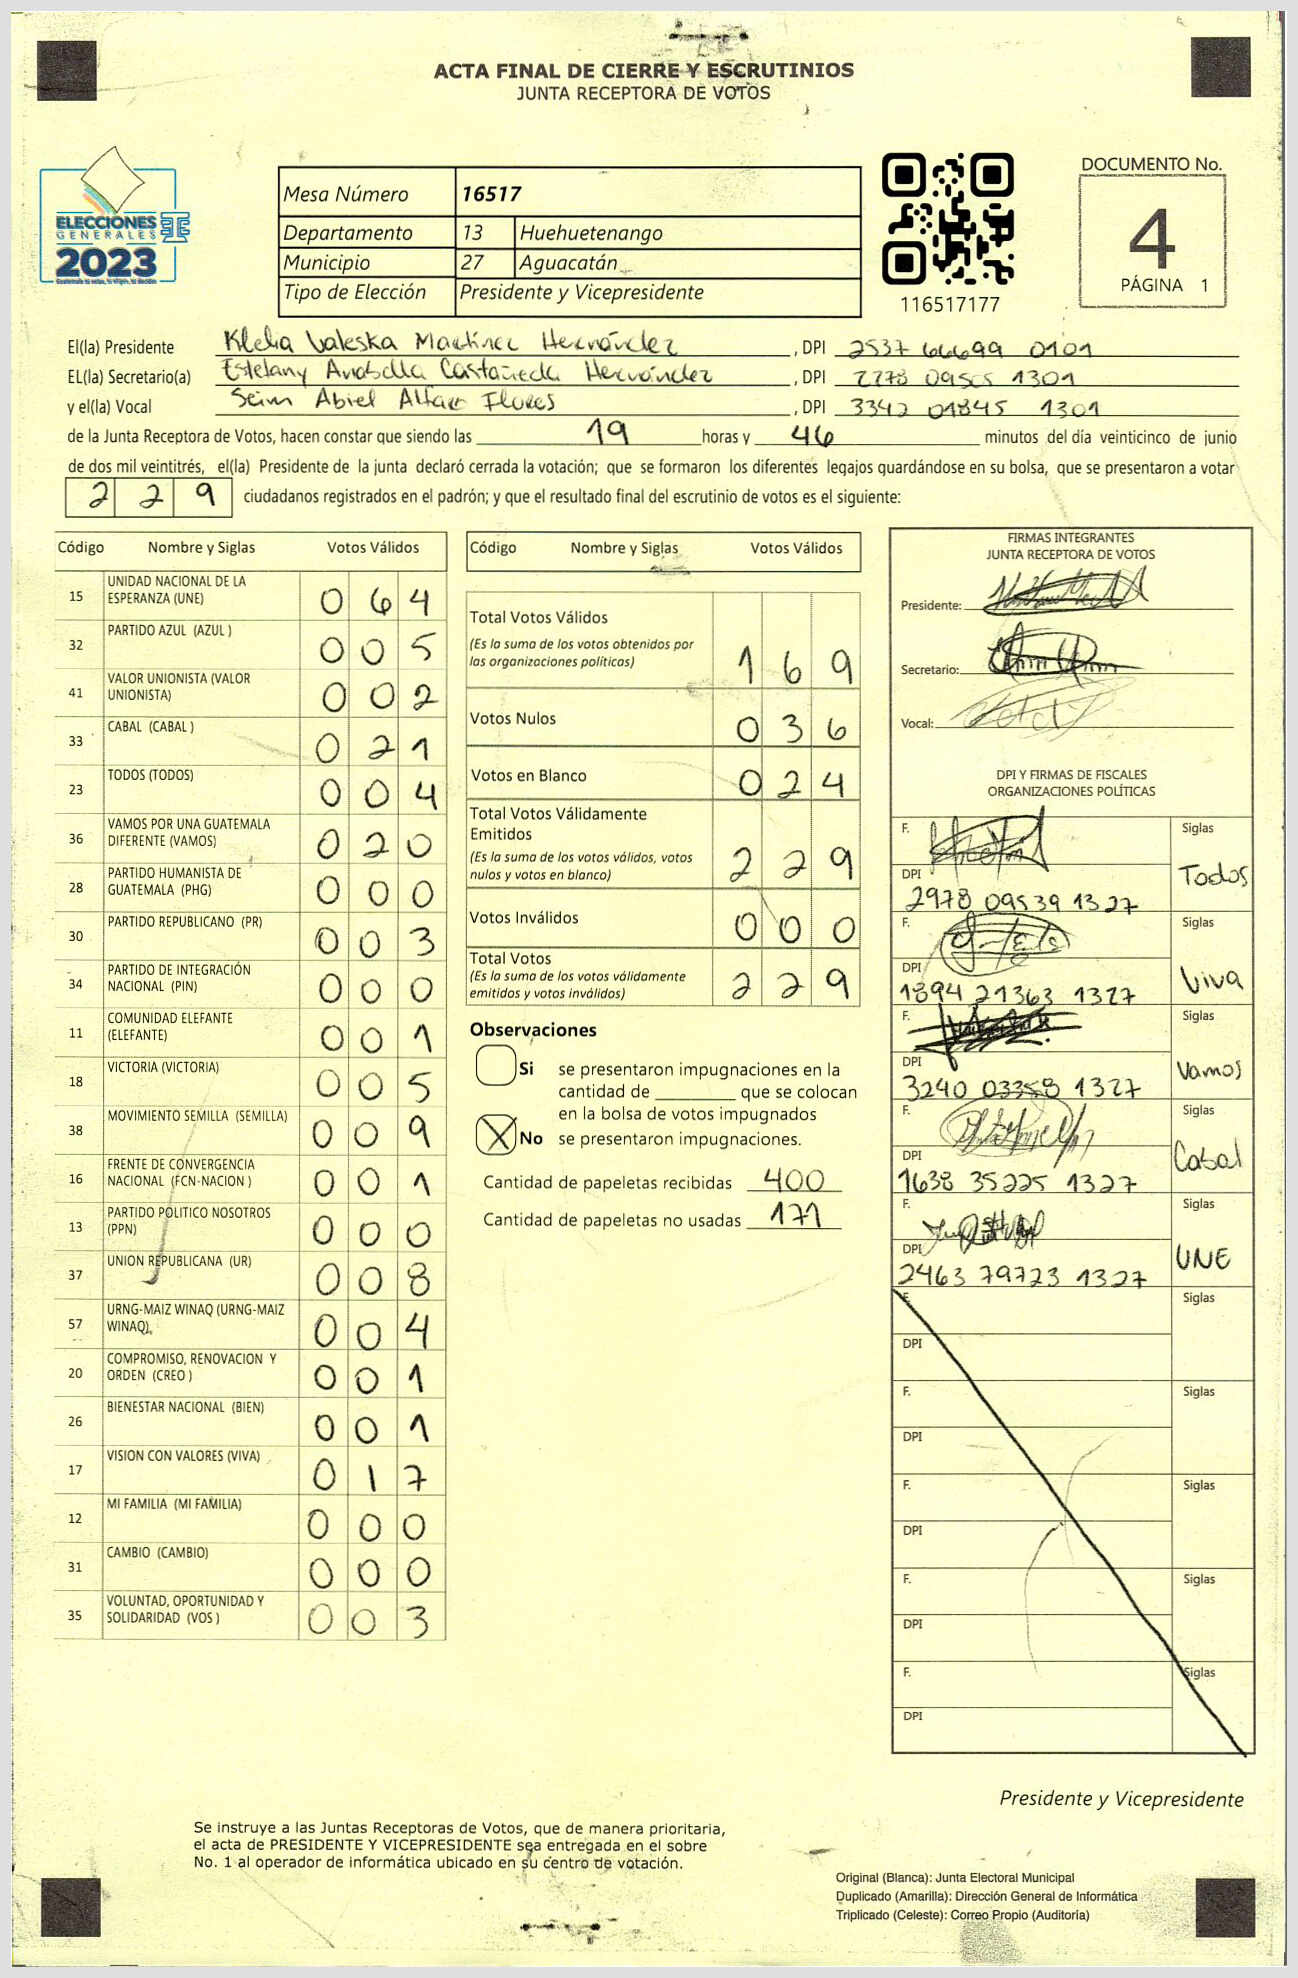 ACTA FINAL DE CIERRE Y ESCRUTINIOS
JUNTA RECEPTORA DE VOTOS
ELECCIONES
GENERALES
2023
Mesa Número 16517
Departamento 13 Huehuetenango
Municipio 27 Aguacatán
Tipo de Elección Presidente y Vicepresidente
116517177
DOCUMENTO No.
4
PÁGINA 1
El(la) Presidente Klelia Valeska Martínez Hernández, DPI 2537 66699 0101
EL(la) Secretario(a) Estefany Anabella Castañeda Hernández, DPI 2278 09505 1301
y el(la) Vocal Seim Abiel Alfaro Flores, DPI 3342 01845 1301
de la Junta Receptora de Votos, hacen constar que siendo las 19 horas y 46 minutos del día veinticinco de junio
de dos mil veintitrés, el(la) Presidente de la junta declaró cerrada la votación; que se formaron los diferentes legajos guardándose en su bolsa, que se presentaron a votar
2 2 9 ciudadanos registrados en el padrón; y que el resultado final del escrutinio de votos es el siguiente:
Código Nombre y Siglas Votos Válidos
15 UNIDAD NACIONAL DE LA
ESPERANZA (UNE) 0 6 4
32 PARTIDO AZUL (AZUL ) 0 0 5
41 VALOR UNIONISTA (VALOR
UNIONISTA) 0 0 2
33 CABAL (CABAL ) 0 2 1
23 TODOS (TODOS) 0 0 4
36 VAMOS POR UNA GUATEMALA
DIFERENTE (VAMOS) 0 2 0
28 PARTIDO HUMANISTA DE
GUATEMALA (PHG) 0 0 0
30 PARTIDO REPUBLICANO (PR) 0 0 3
34 PARTIDO DE INTEGRACIÓN
NACIONAL (PIN) 0 0 0
11 COMUNIDAD ELEFANTE
(ELEFANTE) 0 0 1
18 VICTORIA (VICTORIA) 0 0 5
38 MOVIMIENTO SEMILLA (SEMILLA) 0 0 9
16 FRENTE DE CONVERGENCIA
NACIONAL (FCN-NACION ) 0 0 1
13 PARTIDO POLITICO NOSOTROS
(PPN) 0 0 0
37 UNION REPUBLICANA (UR) 0 0 8
57 URNG-MAIZ WINAQ (URNG-MAIZ
WINAQ) 0 0 4
20 COMPROMISO, RENOVACION Y
ORDEN (CREO ) 0 0 1
26 BIENESTAR NACIONAL (BIEN) 0 0 1
17 VISION CON VALORES (VIVA) 0 1 7
12 MI FAMILIA (MI FAMILIA) 0 0 0
31 CAMBIO (CAMBIO) 0 0 0
35 VOLUNTAD, OPORTUNIDAD Y
SOLIDARIDAD (VOS ) 0 0 3
Código Nombre y Siglas Votos Válidos
Total Votos Válidos
(Es la suma de los votos obtenidos por
las organizaciones políticas) 1 6 9
Votos Nulos 0 3 6
Votos en Blanco 0 2 4
Total Votos Válidamente
Emitidos
(Es la suma de los votos válidos, votos
nulos y votos en blanco) 2 2 9
Votos Inválidos 0 0 0
Total Votos
(Es la suma de los votos válidamente
emitidos y votos inválidos) 2 2 9
Observaciones
Si se presentaron impugnaciones en la
cantidad de ________ que se colocan
en la bolsa de votos impugnados
X No se presentaron impugnaciones.
Cantidad de papeletas recibidas 400
Cantidad de papeletas no usadas 171
FIRMAS INTEGRANTES
JUNTA RECEPTORA DE VOTOS
Presidente:
Secretario:
Vocal:
DPI Y FIRMAS DE FISCALES
ORGANIZACIONES POLÍTICAS
F. Siglas
DPI Todos
2978 09539 1327
F. Siglas
DPI Viva
1894 21363 1327
F. Siglas
DPI Vamos
3240 03358 1327
F. Siglas
DPI Cabal
1638 35225 1327
F. Siglas
DPI UNE
2463 79723 1327
F. Siglas
DPI
F. Siglas
DPI
F. Siglas
DPI
F. Siglas
DPI
F. Siglas
DPI
Presidente y Vicepresidente
Se instruye a las Juntas Receptoras de Votos, que de manera prioritaria,
el acta de PRESIDENTE Y VICEPRESIDENTE sea entregada en el sobre
No. 1 al operador de informática ubicado en su centro de votación.
Original (Blanca): Junta Electoral Municipal
Duplicado (Amarilla): Dirección General de Informática
Triplicado (Celeste): Correo Propio (Auditoría)